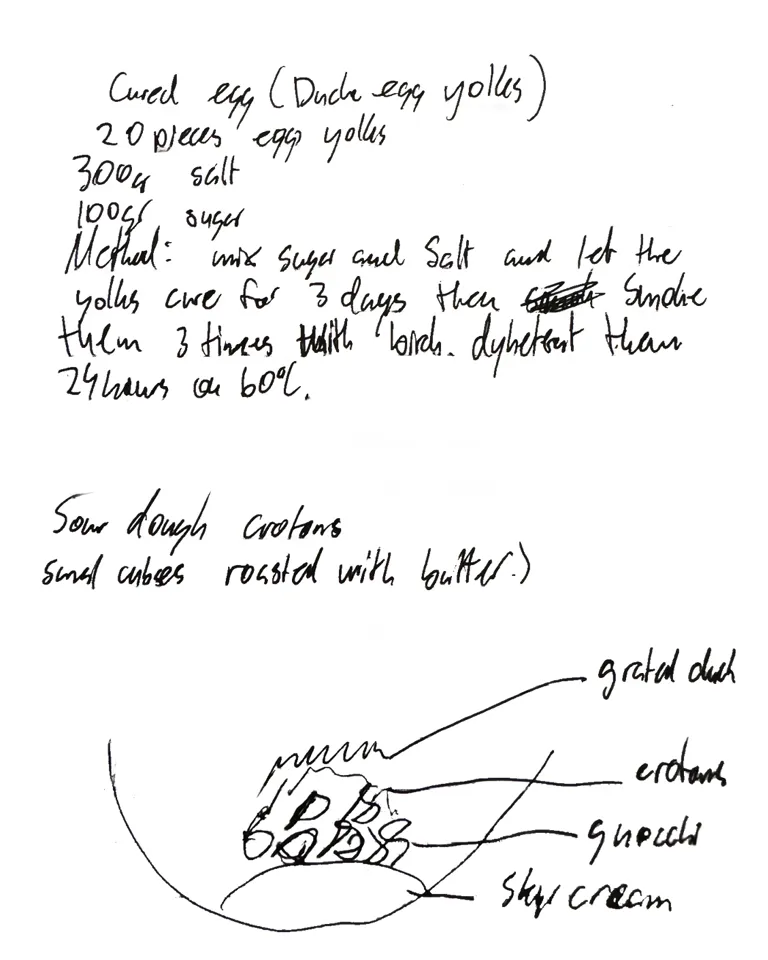 Cured egg (Duck egg yolks)
20 pieces egg yolks
300gr salt
100gr suger
Method: mix suger and Salt and let the
yolks cure for 3 days then Smoke
them 3 times with birch. dyhetrat them
24 hours on 60°C.
Sour dough crotons
small cubes roasted with butter:)
grated duck
crotons
gnocchi
Skyr cream